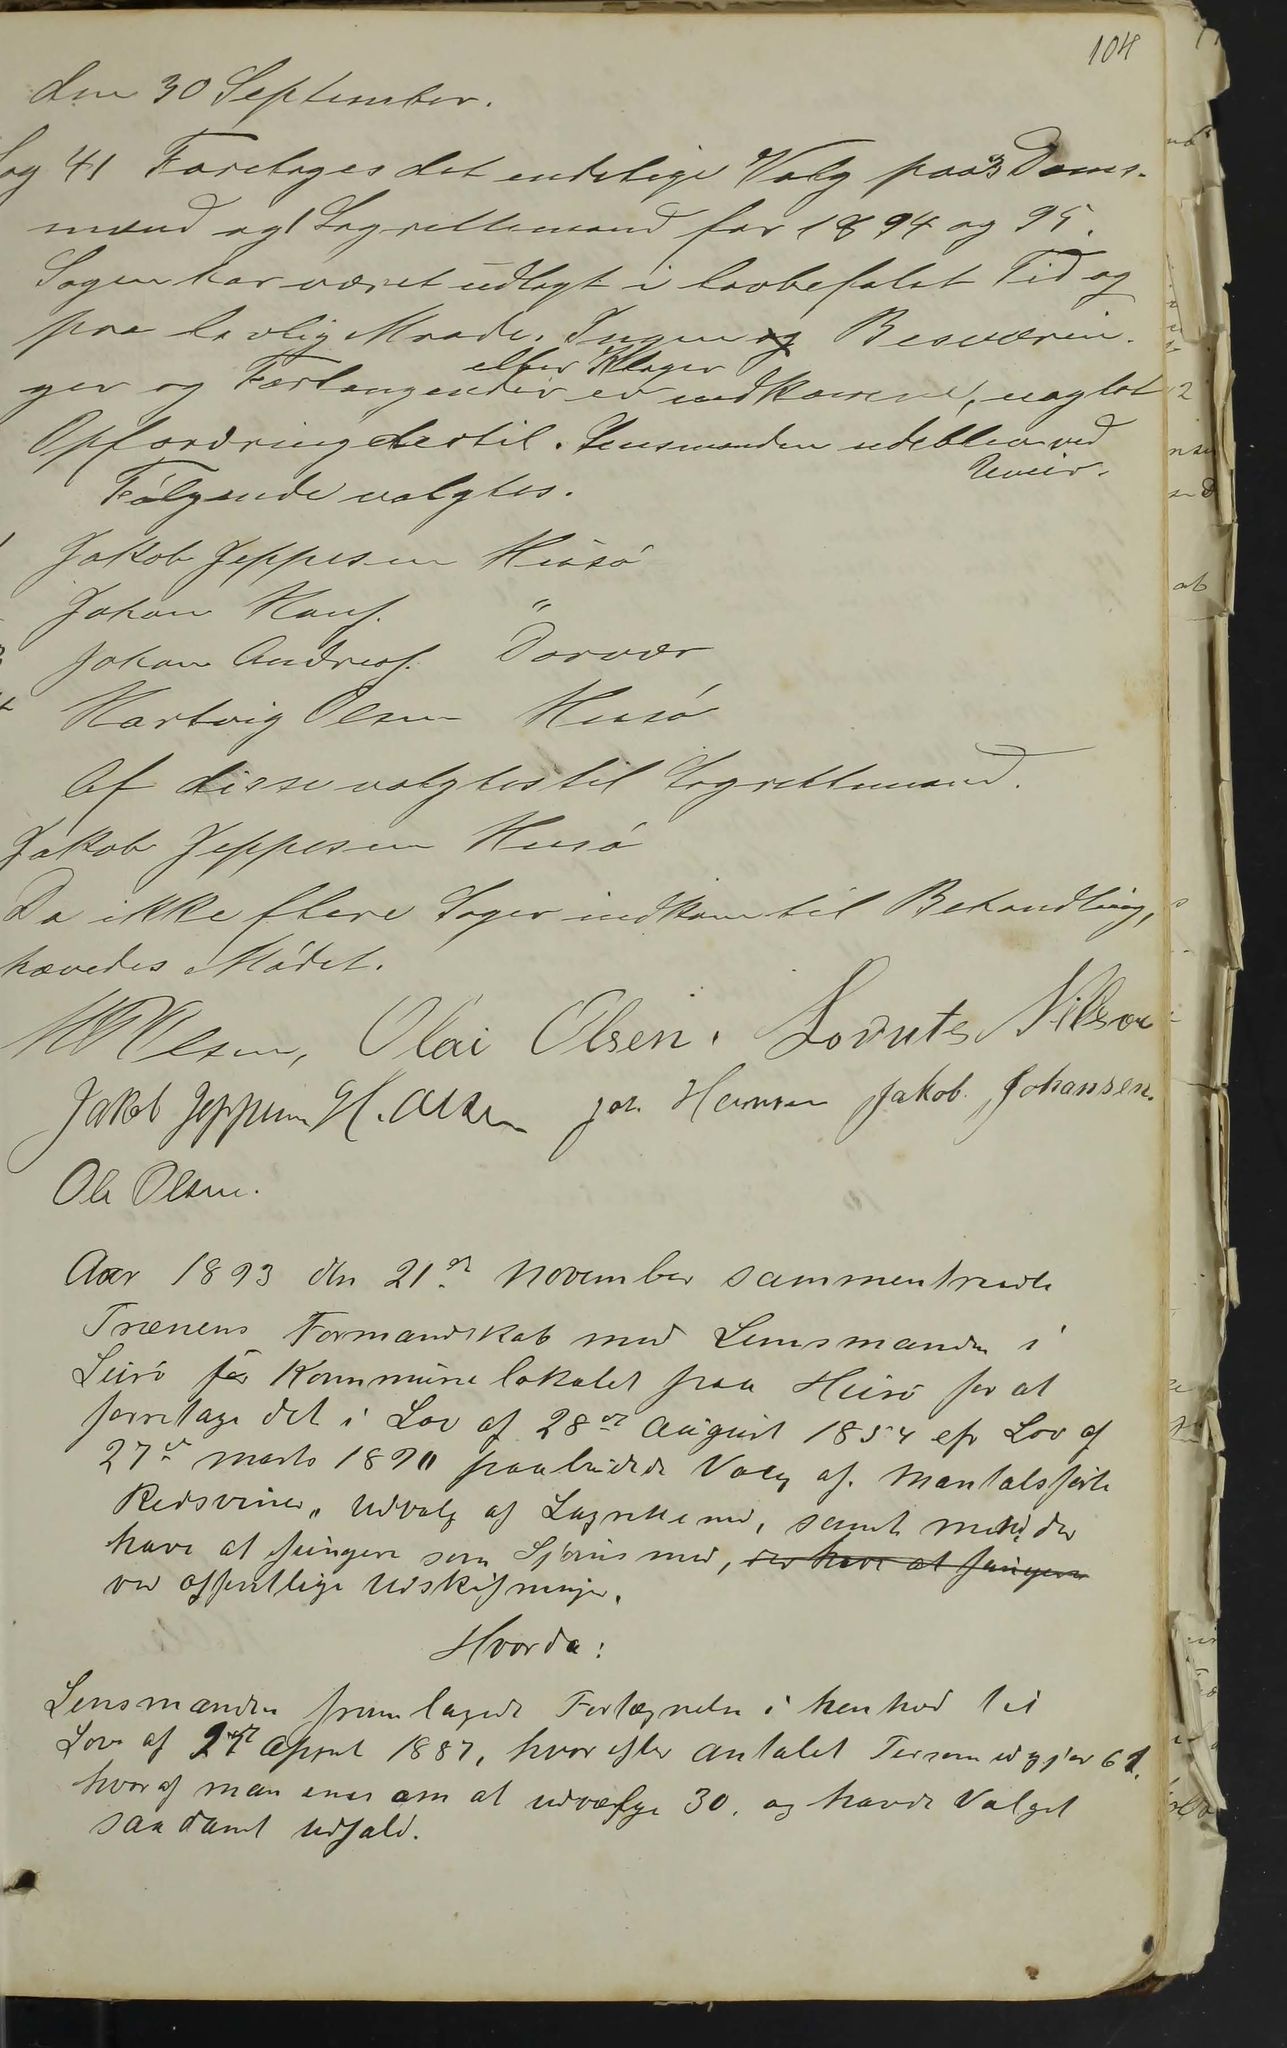 104
den 30 September.
Sag 41 Foretoges det endelige Valg paa 3 Doms-
mænd og 1 Lagrettemand for 1894 og 95.
Sagen har været udlagt i lovbefalet Tid og
paa lovlig Maade. Ingen Besværin-
eller Klager
ger og Forlangender er indkomne, uagtet
Opfordring dertil. Lensmanden udeblev ved
Uveir.
Følgende valgtes.
Jakob Jeppesen Husø
Johan Hans. "
Johan Andreas. Dorvær
Hartvig Olsen Husø
Af disse valgtes til Lagrettemand.
Jakob Jeppesen Husø
Da ikke flere Sager indkom til Behandling,
hævedes Mødet.
Olsen, Olai Olsen. Lornts Nilsen
Jakob Jeppesen H. Olsen Joh. Hansen Jakob Johansen.
Ole Olsen.
Aar 1893 den 21de November sammentraadte
Trænens Formandskab med Lensmanden i
Lurö Kommunelokalet paa Husö for at
foretage det i Lov af 28de August 1854 Lov af
27de Marts 1890 paabudede Valg af Mantalsførte
Udvalg af Lagrettemd, samt Mænd der
have at fungere som Skjønsmd, der have at fungere
ved offentlige Udskiftninger.
Hvorda:
Lensmanden fremlagde Fortegnelse i henhold til
Lov af April 1887, hvorefter Antalet udgjør 61.
hvoraf man enes om at udvælge 30. og havde Valget
saadant Udfald.